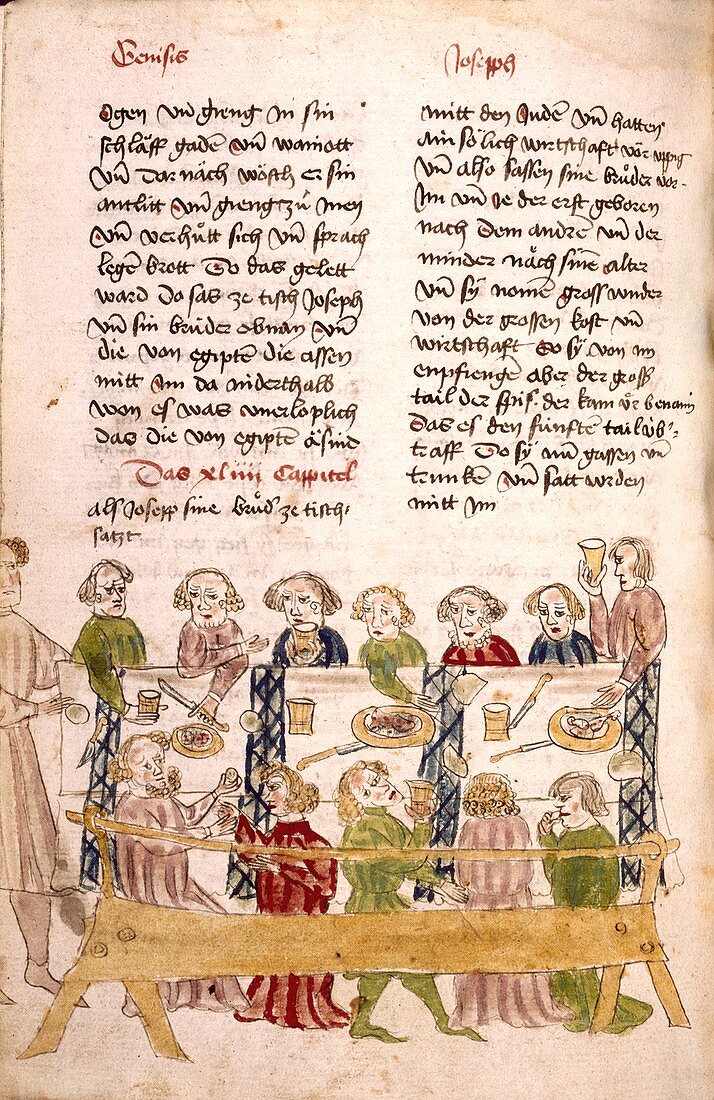 Genisis
ogen vñ gieng in sin
schläff gaden vñ wainott
vñ dar näch wösch er sin
antlitt vñ gieng zů inen
vñ verhůtt sich vñ sprach
legen brott Do das gelett
ward do sas ze tisch Joseph
vñ sin brůder obnän vñ
die von egiptē die assen
mitt im da niderthalb
won es was vnerloplich
das die von egiptē äsind
Das xliiii Cappitel
als Josepp sine brůd ze tisch-
satzt
Joseph
mitt den Judē vñ hatten
ain sölich wirtschaft vör vppig
vñ also sassen sine brůder vor-
im vñ ie der erst geboren
nach dem andrē vñ der
minder näch sinē alter
vñ sÿ nomē gross wnder
von der grossen kost vñ
wirtschaft So sÿ von im
enpfiengē aber der gross
tail der der kam benain
das es den fünftē tail üb-
traff Do sÿ nun gassen vñ
trunken vñ satt wrden
mitt im